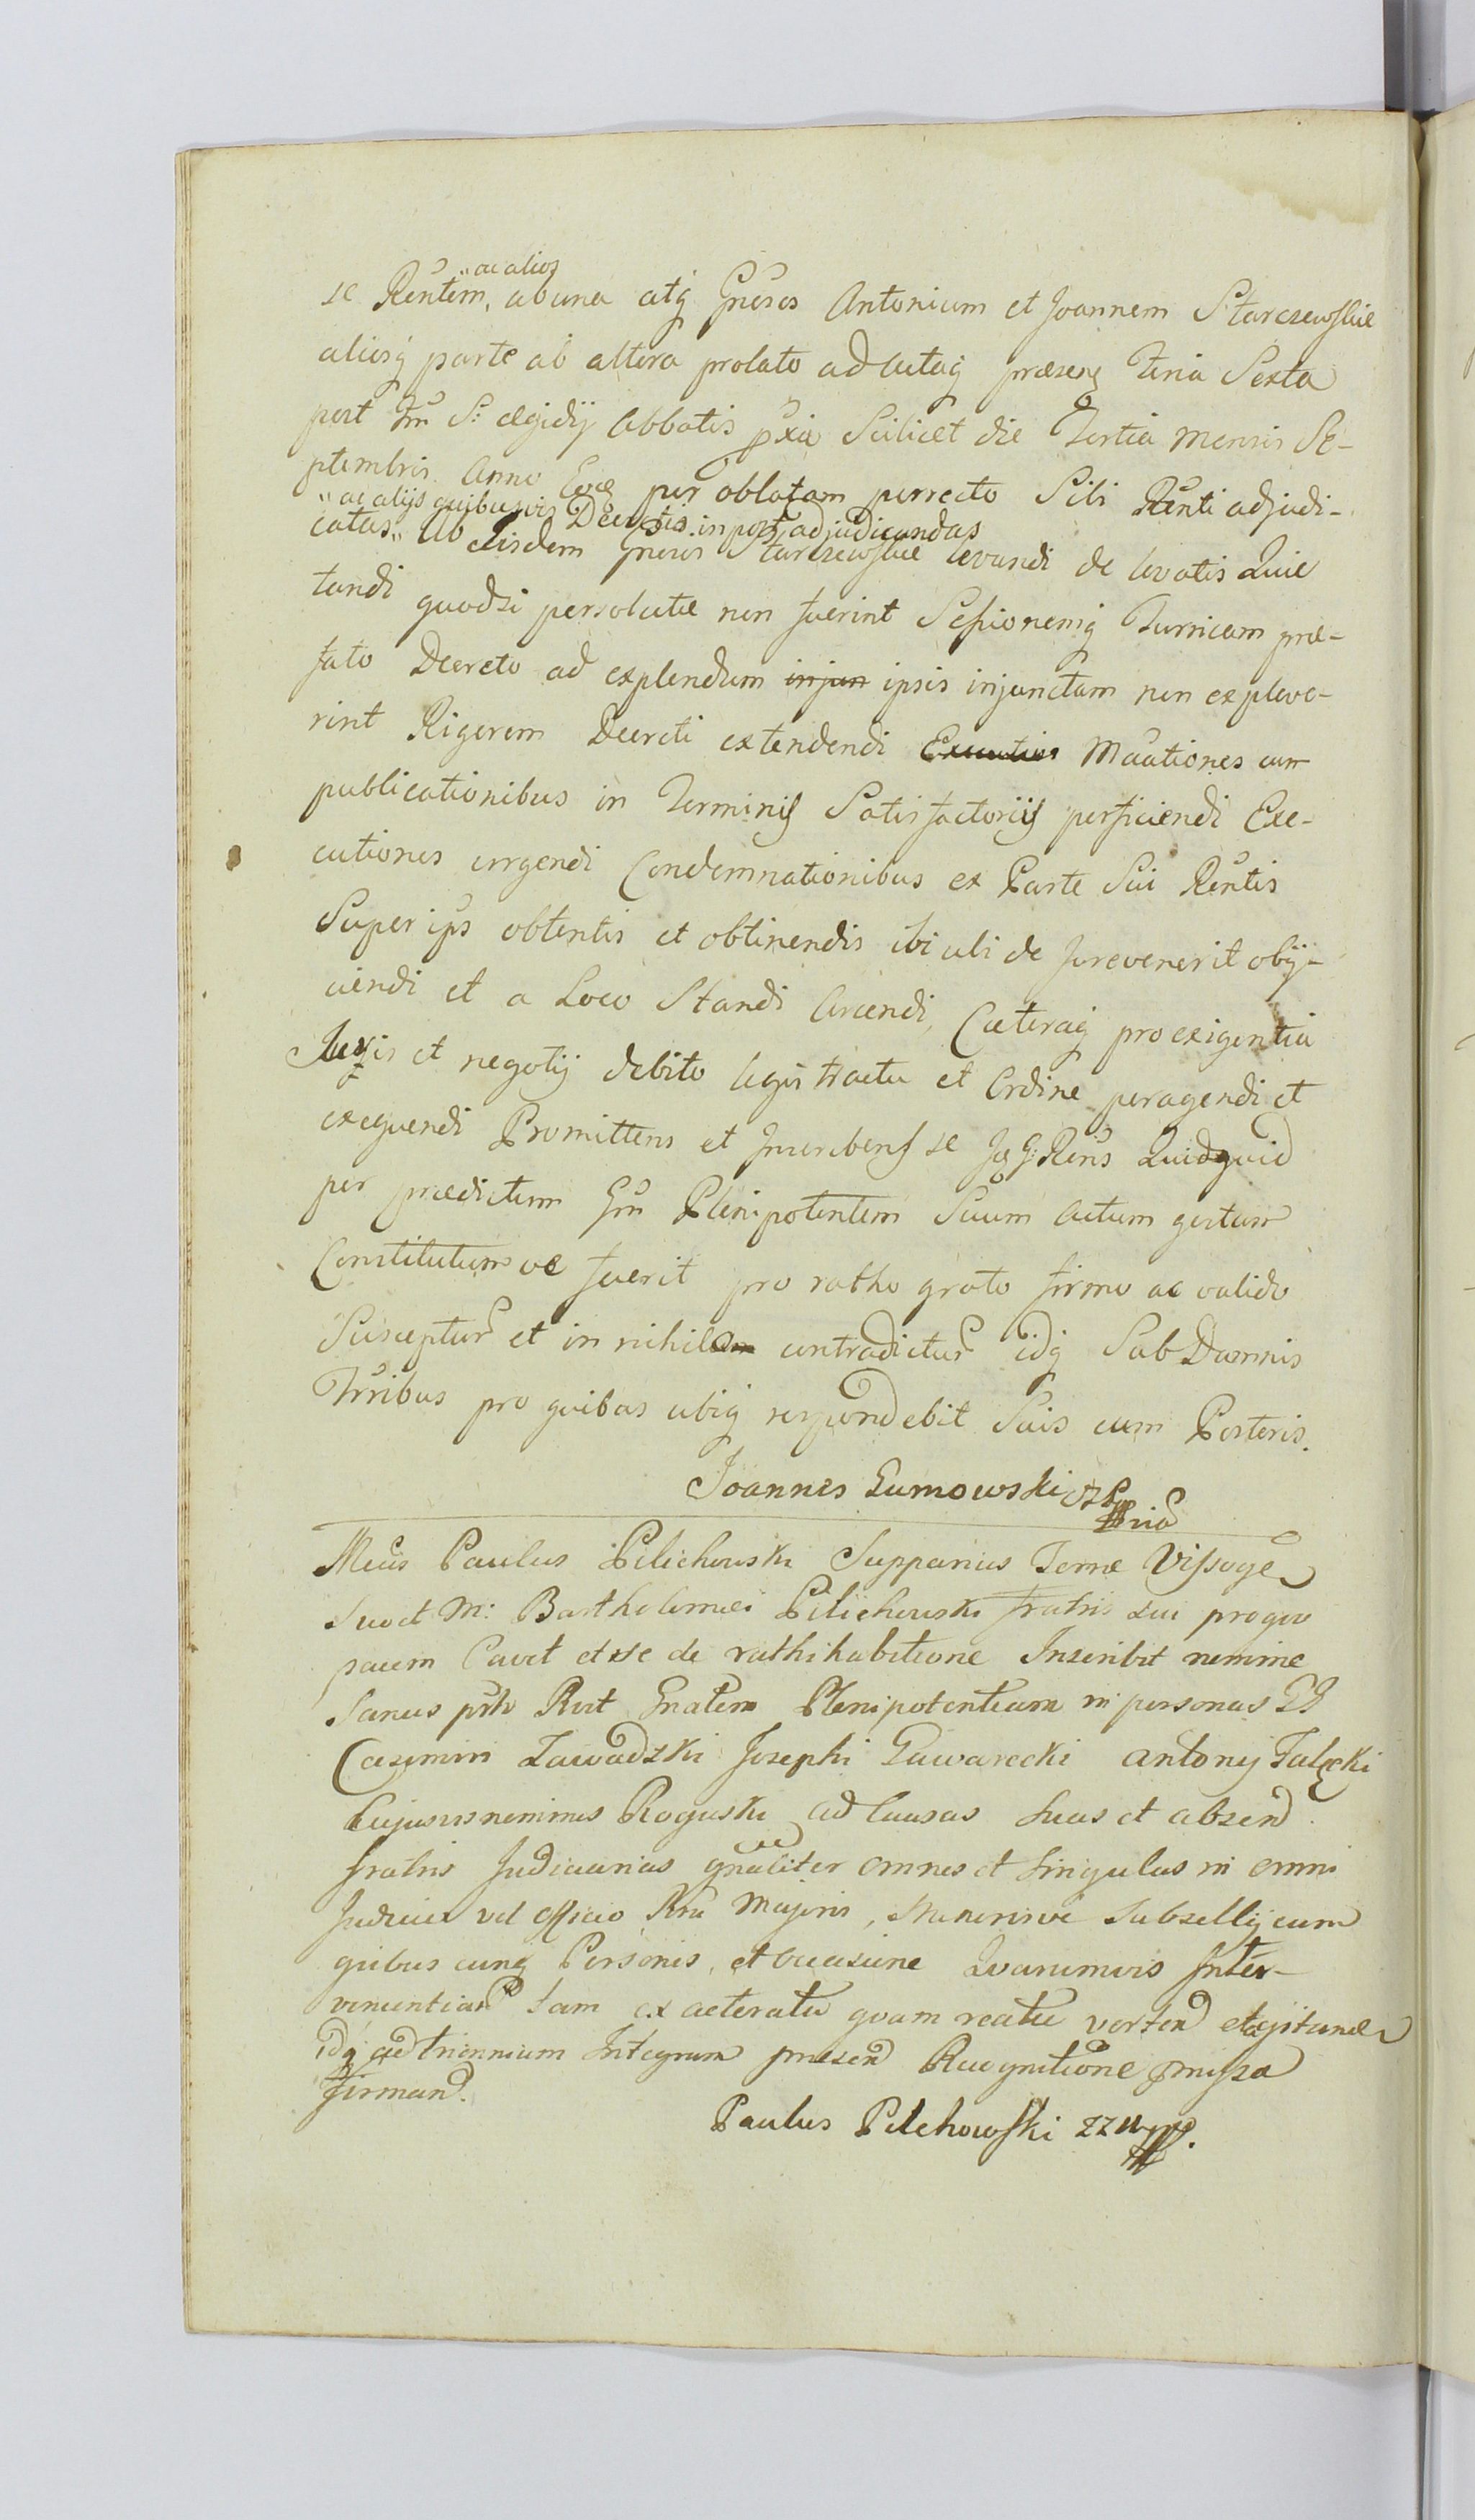 "ac alios
se Rentem, ab una atq Gnosos Antonium et Joannem Starczewskie
aliosq parte ab altera prolato ad Actaq præsens Feria Sexta
post Fm S: Ægidij Abbatis pxia Scilicet die Tertia Mensis Se-
ptembris Anno per oblatam porrecto Sibi Renti adjudi-
"ac alijs quibusvis Decretis in post adjudicandas
catas" Ab Eisdem Gnosis Starczewskie levandi de levatis Quie
tandi quodsi persolutæ non fuerint Sessionemq Turricam præ-
fato Decreto ad explendum injun ipsis injunctam non expleve-
rint Rigorem Decreti extendendi Executiones cum
publicationibus in Terminis Satisfactoriis perficiendi Exe-
cutiones urgendi Condemnationibus ex Parte Sui Rentis
Super ips obtentis et obtinendis ibi ubi de Jure venerit obij-
ciendi et a Loco Standi Arcendi, Cæteraq pro exigentia
Juris et negotij debito legis tractu et Ordine peragendi et
exequendi Promittens et Inscribens se G: Rens Quidquid
per prædictum Gm Plenipotentem Suum Actum gestum
Constitutumve fuerit pro ratho grato firmo ac valido
Suscepturs et in nihilom contradicturs idq Sub Damnis
Trribus pro quibus ubiq respondebit Suis cum Posteris.
Joannes Gumowski
Mcus Paulus Pilichowski Supparius Terræ Vissoge
suo et M: Bartholomæi Pilichowski fratris sui pro quo
pacem Cavet et se de rathihabitione Inscribit nemine
Sanus Rvit Gnalem Plenipotentiam in personas GG
Casimiri Zawadzki Josephi Gawarecki Antonij Falęcki
Cujusvis nominis Roguski ad Causas Suas et absend
fratris Judiciarias gnaliter omnes et Singulas in omni
Judicio vel officio Rni Majoris, Minorisve Subsellij cum
quibuscunq Personis, et occasione Quarumvis Inter-
venientiar tam ex acteratu quam reatu vorten et agitand
idq ad triennium Integrum præsend Recognitione pmissa
firmand.
Paulus Pilchowski